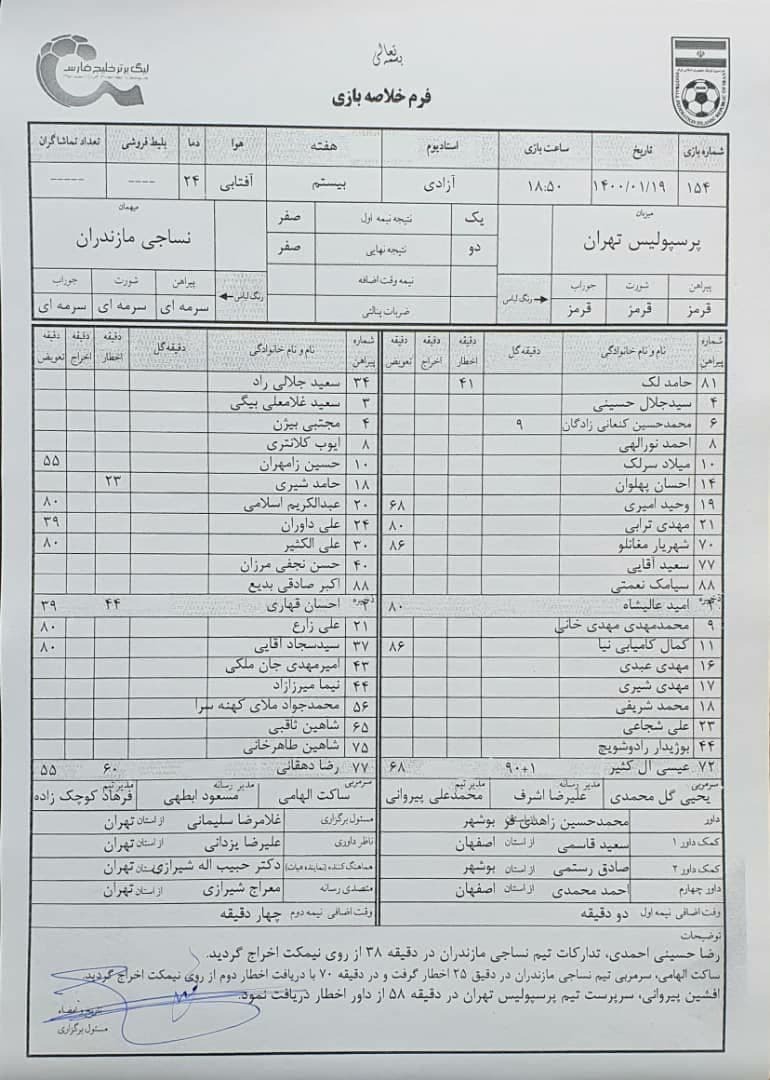 بسمه تعالی
لیگ برتر خلیج فارس
فرم خلاصه بازی
شماره بازی تاریخ ساعت بازی استادیوم هفته هوا دما بلیط فروشی تعداد تماشاگران
۱۵۴ ۱۴۰۰/۰۱/۱۹ ۱۸:۵۰ آزادی بیستم آفتابی ۲۴ ---- -----
میزبان یک نتیجه نیمه اول صفر میهمان
پرسپولیس تهران دو نتیجه نهایی صفر نساجی مازندران
نیمه وقت اضافه
پیراهن شورت جوراب رنگ لباس ضربات پنالتی رنگ لباس پیراهن شورت جوراب
قرمز قرمز قرمز سرمه ای سرمه ای سرمه ای
شماره پیراهن نام و نام خانوادگی دقیقه گل دقیقه اخطار دقیقه اخراج دقیقه تعویض شماره پیراهن نام و نام خانوادگی دقیقه گل دقیقه اخطار دقیقه اخراج دقیقه تعویض
۸۱ حامد لک ۴۱ ۳۴ سعید جلالی راد
۴ سیدجلال حسینی ۳ سعید غلامعلی بیگی
۶ محمدحسین کنعانی زادگان ۹ ۴ مجتبی بیژن
۸ احمد نورالهی ۸ ایوب کلانتری
۱۰ میلاد سرلک ۱۰ حسین زامهران ۵۵
۱۴ احسان پهلوان ۱۸ حامد شیری ۲۳
۱۹ وحید امیری ۶۸ ۲۰ عبدالکریم اسلامی ۸۰
۲۱ مهدی ترابی ۸۰ ۲۴ علی داوران ۳۹
۷۰ شهریار مغانلو ۸۶ ۳۰ علی الکثیر ۸۰
۷۷ سعید آقایی ۴۰ حسن نجفی مرزان
۸۸ سیامک نعمتی ۸۸ اکبر صادقی بدیع
ذخیره امید عالیشاه ۸۰ ذخیره احسان قهاری ۴۴ ۳۹
۹ محمدمهدی مهدی خانی ۲۱ علی زارع ۸۰
۱۱ کمال کامیابی نیا ۸۶ ۳۷ سیدسجاد آقایی ۸۰
۱۶ مهدی عبدی ۴۳ امیرمهدی جان ملکی
۱۷ مهدی شیری ۴۴ نیما میرزازاد
۱۸ محمد شریفی ۵۶ محمدجواد ملای کهنه سرا
۲۳ علی شجاعی ۶۵ شاهین ثاقبی
۴۴ بوژیدار رادوشویچ ۷۵ شاهین طاهرخانی
۷۲ عیسی ال کثیر ۹۰+۱ ۶۸ ۷۷ رضا دهقانی ۶۰ ۵۵
سرمربی یحیی گل محمدی مدیر رسانه علیرضا اشرف مدیر تیم محمدعلی پیروانی سرمربی ساکت الهامی مدیر رسانه مسعود ابطهی مدیر تیم فرهاد کوچک زاده
داور محمدحسین زاهدی فر از استان بوشهر مسئول برگزاری غلامرضا سلیمانی از استان تهران
کمک داور ۱ سعید قاسمی از استان اصفهان ناظر داوری علیرضا یزدانی از استان تهران
کمک داور ۲ صادق رستمی از استان بوشهر هماهنگ کننده (نماینده هیات) دکتر حبیب اله شیرازی از استان تهران
داور چهارم احمد محمدی از استان اصفهان متصدی رسانه معراج شیرازی از استان تهران
وقت اضافی نیمه اول دو دقیقه وقت اضافی نیمه دوم چهار دقیقه
توضیحات
رضا حسینی احمدی، تدارکات تیم نساجی مازندران در دقیقه ۳۸ از روی نیمکت اخراج گردید.
ساکت الهامی، سرمربی تیم نساجی مازندران در دقیق ۲۵ اخطار گرفت و در دقیقه ۷۰ با دریافت اخطار دوم از روی نیمکت اخراج گردید.
افشین پیروانی، سرپرست تیم پرسپولیس تهران در دقیقه ۵۸ از داور اخطار دریافت نمود.
تاریخ و امضاء
مسئول برگزاری